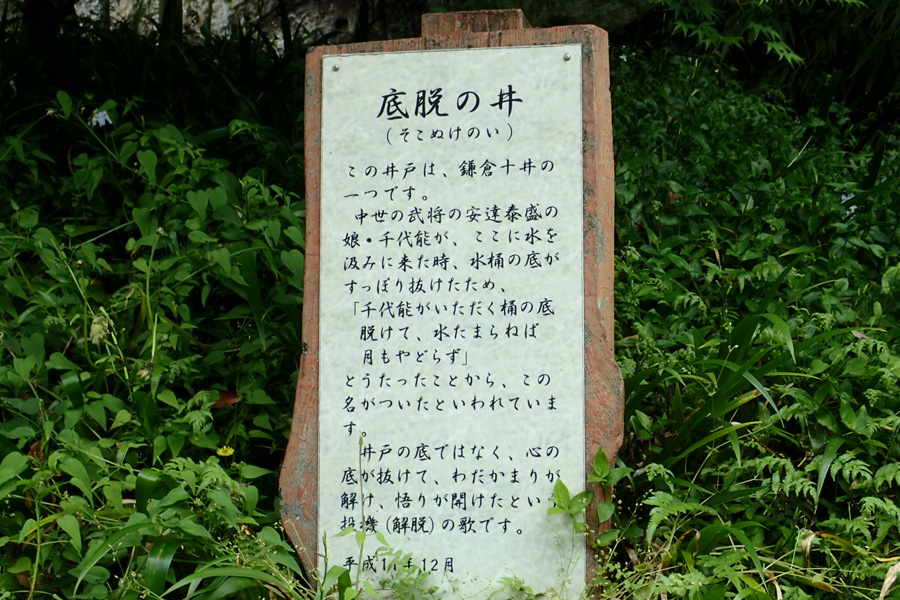 底脱の井
(そこぬけのい)
この井戸は、鎌倉十井の
一つです。
中世の武将の安達泰盛の
娘・千代能が、ここに水を
汲みに来た時、水桶の底が
すっぽり抜けたため、
「千代能がいただく桶の底
脱けて、水たまらねば
月もやどらず」
とうたったことから、この
名がついたといわれていま
す。
井戸の底ではなく、心の
底が抜けて、わだかまりが
解け、悟りが開けたという
投機(解脱)の歌です。
平成17年12月